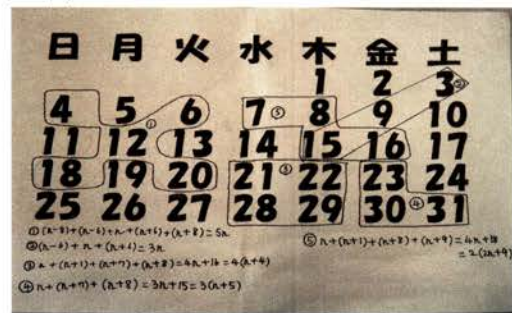 日 月 火 水 木 金 土
1 2 3②
4 5 6 7⑤ 8 9 10
①
11 12 13 14 15 16 17
18 19 20 21③ 22 23 24
25 26 27 28 29 30④ 31
①(n-8)+(n-6)+n+(n+6)+(n+8)=5n
②(n-6)+n+(n+6)=3n
③n+(n+1)+(n+7)+(n+8)=4n+16=4(n+4)
④n+(n+7)+(n+8)=3n+15=3(n+5)
⑤n+(n+1)+(n+8)+(n+9)=4n+18
=2(2n+9)